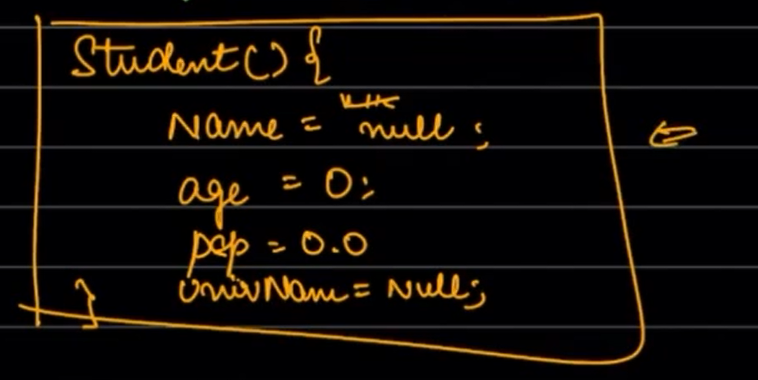 Student() {
Name = null;
age = 0;
psp = 0.0
univName = Null;
}